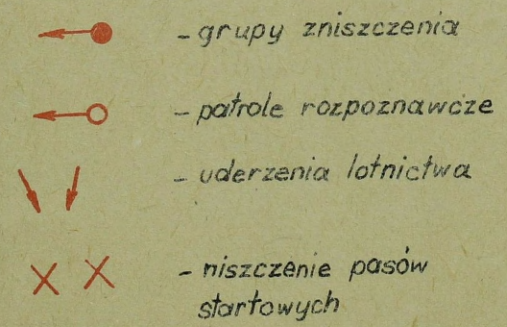 - grupy zniszczenia
- patrole rozpoznawcze
- uderzenia lotnictwa
- niszczenie pasów
startowych